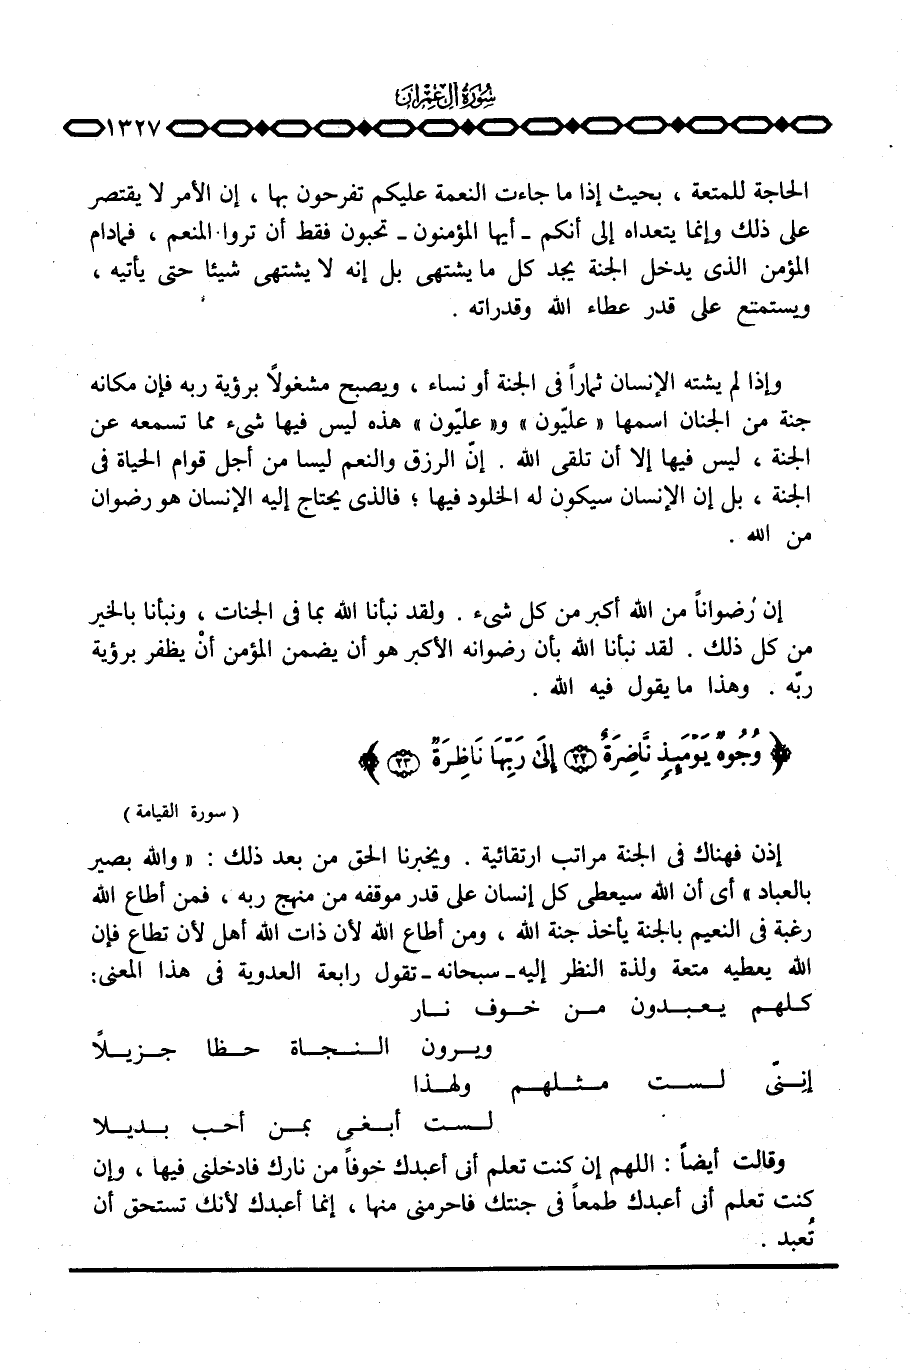 سورة آل عمران
١٣٢٧
الحاجة للمتعة ، بحيث إذا ما جاءت النعمة عليكم تفرحون بها ، إن الأمر لا يقتصر
على ذلك وإنما يتعداه إلى أنكم ـ أيها المؤمنون ـ تحبون فقط أن تروا المنعم ، فمادام
المؤمن الذى يدخل الجنة يجد كل ما يشتهى بل إنه لا يشتهى شيئا حتى يأتيه ،
ويستمتع على قدر عطاء الله وقدراته .
وإذا لم يشته الإنسان ثماراً فى الجنة أو نساء ، ويصبح مشغولاً برؤية ربه فإن مكانه
جنة من الجنان اسمها « عليّون » و« عليّون » هذه ليس فيها شىء مما تسمعه عن
الجنة ، ليس فيها إلا أن تلقى الله . إنّ الرزق والنعم ليسا من أجل قوام الحياة فى
الجنة ، بل إن الإنسان سيكون له الخلود فيها ؛ فالذى يحتاج إليه الإنسان هو رضوان
من الله .
إن رُضواناً من الله أكبر من كل شىء . ولقد نبأنا الله بما فى الجنات ، ونبأنا بالخير
من كل ذلك . لقد نبأنا الله بأن رضوانه الأكبر هو أن يضمن المؤمن أنْ يظفر برؤية
ربّه . وهذا ما يقول فيه الله .
﴿ وُجُوهٌ يَوْمَئِذٍ نَّاضِرَةٌ ٢٢ إِلَىٰ رَبِّهَا نَاظِرَةٌ ٢٣ ﴾
( سورة القيامة )
إذن فهناك فى الجنة مراتب ارتقائية . ويخبرنا الحق من بعد ذلك : « والله بصير
بالعباد » أى أن الله سيعطى كل إنسان على قدر موقفه من منهج ربه ، فمن أطاع الله
رغبة فى النعيم بالجنة يأخذ جنة الله ، ومن أطاع الله لأن ذات الله أهل لأن تطاع فإن
الله يعطيه متعة ولذة النظر إليه ـ سبحانه ـ تقول رابعة العدوية فى هذا المعنى:
كـلـهـم يـعـبـدون مـن خـوف نـار
ويـرون الـنـجـاة حـظا جـزيـلاً
إنـنّى لـسـت مـثـلـهـم ولهـذا
لـسـت أبـغـى بمـن أحـب بـديـلا
وقالت أيضاً : اللهم إن كنت تعلم أنى أعبدك خوفاً من نارك فادخلنى فيها ، وإن
كنت تعلم أنى أعبدك طمعاً فى جنتك فاحرمنى منها ، إنما أعبدك لأنك تستحق أن
تُعبد .